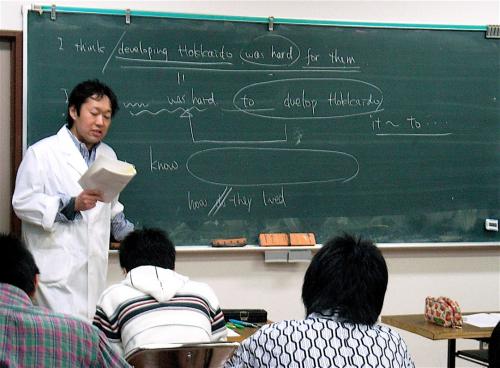 I think / developing Hokkaido was hard for them
I was hard to duelop Hokkaido
it ~ to ....
know
how // they lived